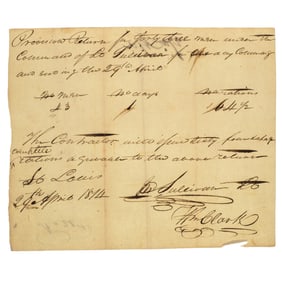 Provision Return for forty three men under the
Command of Lt Sullivan for the day Comencing
and ending the 29th April
No men No days No rations
43 1 64½
The Contractor will issue sixty four & half
complete
rations agreeable to the above return
St Louis
29th April 1814 Sullivan Lt
Wm Clark